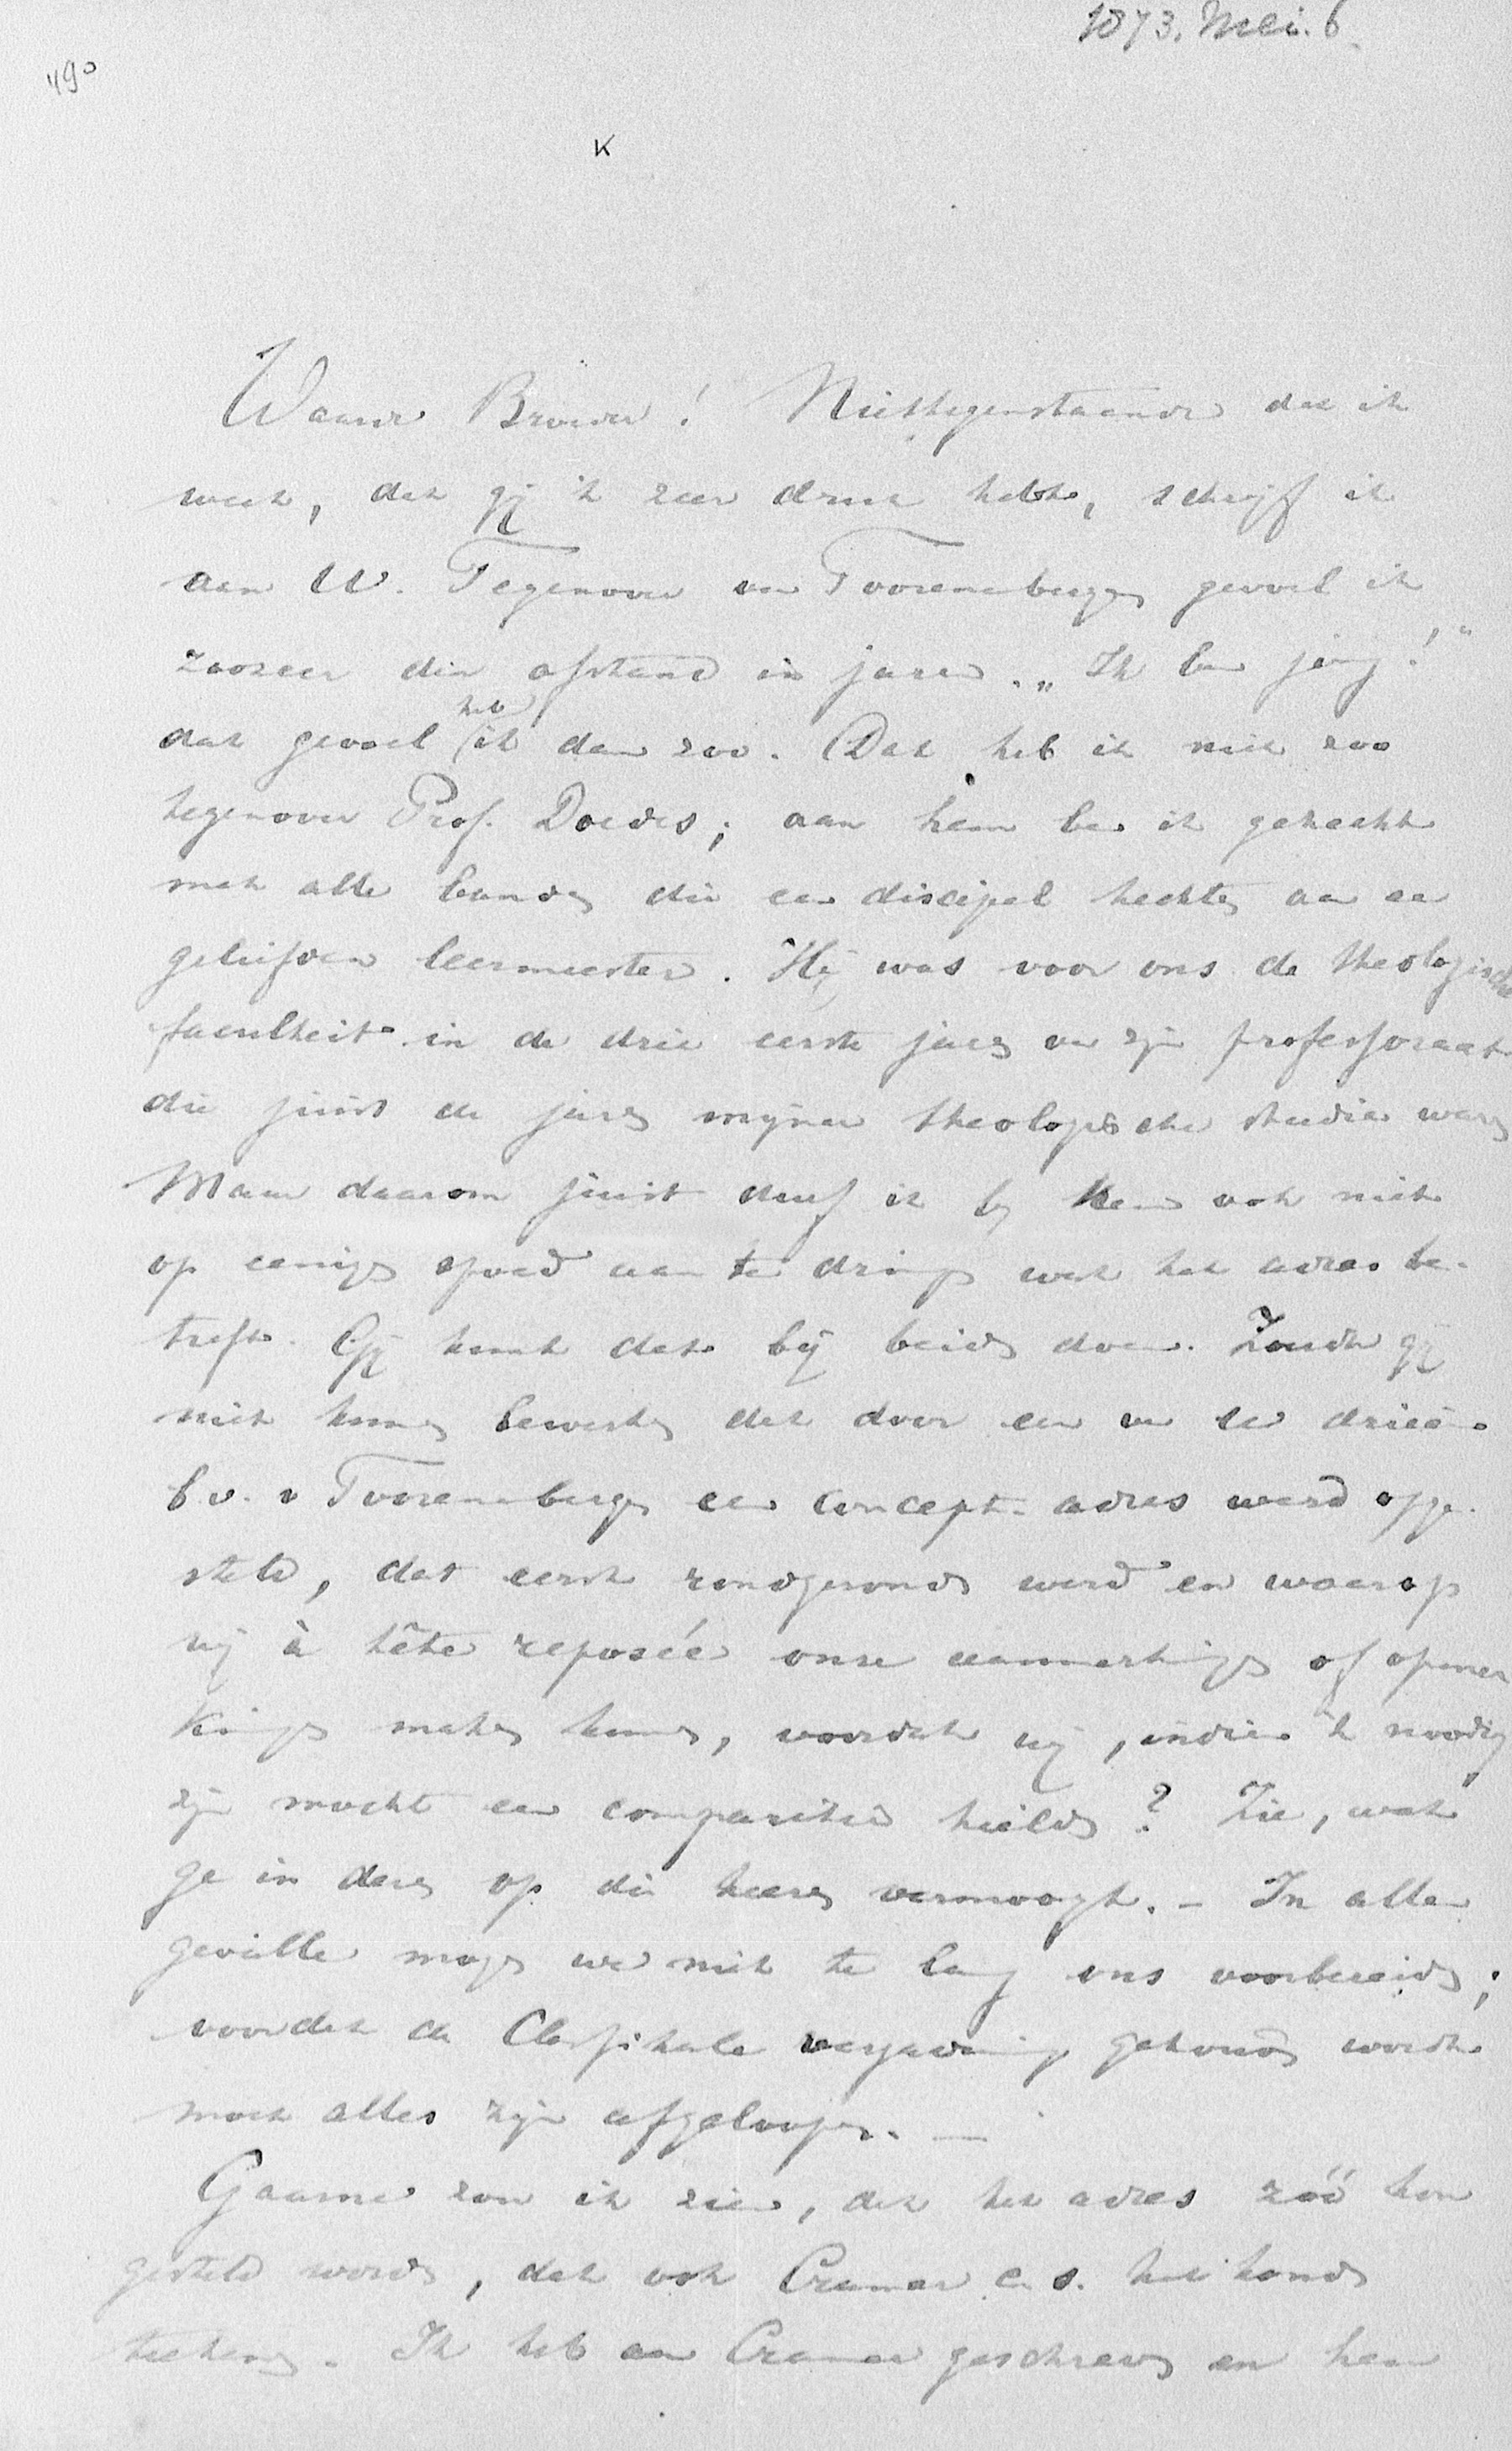 1873. Mei. 6.
490
K
Waarde Broeder! Niettegenstaande dat ik
weet, dat gij 't zeer druk hebt, schrijf ik
aan U. Tegenover van Toorenenbergen gevoel ik
zoozeer dien afstand in jaren. „Ik ben jong!"
dat gevoel ik het dan zoo. Dat heb ik niet zoo
tegenover Prof. Doedes; aan hem ben ik gehecht
met alle banden die een discipel hechten aan een
geliefden leermeester. Hij was voor ons de theologische
faculteit in de drie eerste jaren van zijn professoraat
die juist de jaren mijner theologische studie waren
Maar daarom juist durf ik bij hem ook niet
op eenigen spoed aan te dringen wat het adres be-
treft. Gij kunt dat bij beiden doen. Zoudt gij
niet kunnen bewerken dat door een van de drieën
b.v. v Toorenenbergen een concept-adres werd opge-
steld, dat eerst rondgezonden werd en waarop
wij à tête reposée onze aanmerkingen of opmer
kingen maken kunnen, voordat wij, indien 't noodig
zijn mocht een comparitie hielden? Zie, wat
ge in dezen op die heeren vermoogt. - In allen
gevalle mogen we niet te lang ons voorbereiden;
voordat de Classikale vergadering gehouden wordt
moet alles zijn afgeloopen. —
Gaarne zou ik zien, dat het adres zóó kon
gesteld worden, dat ook Cramer c.s. het konden
teekenen. Ik heb aan Cramer geschreven en hem